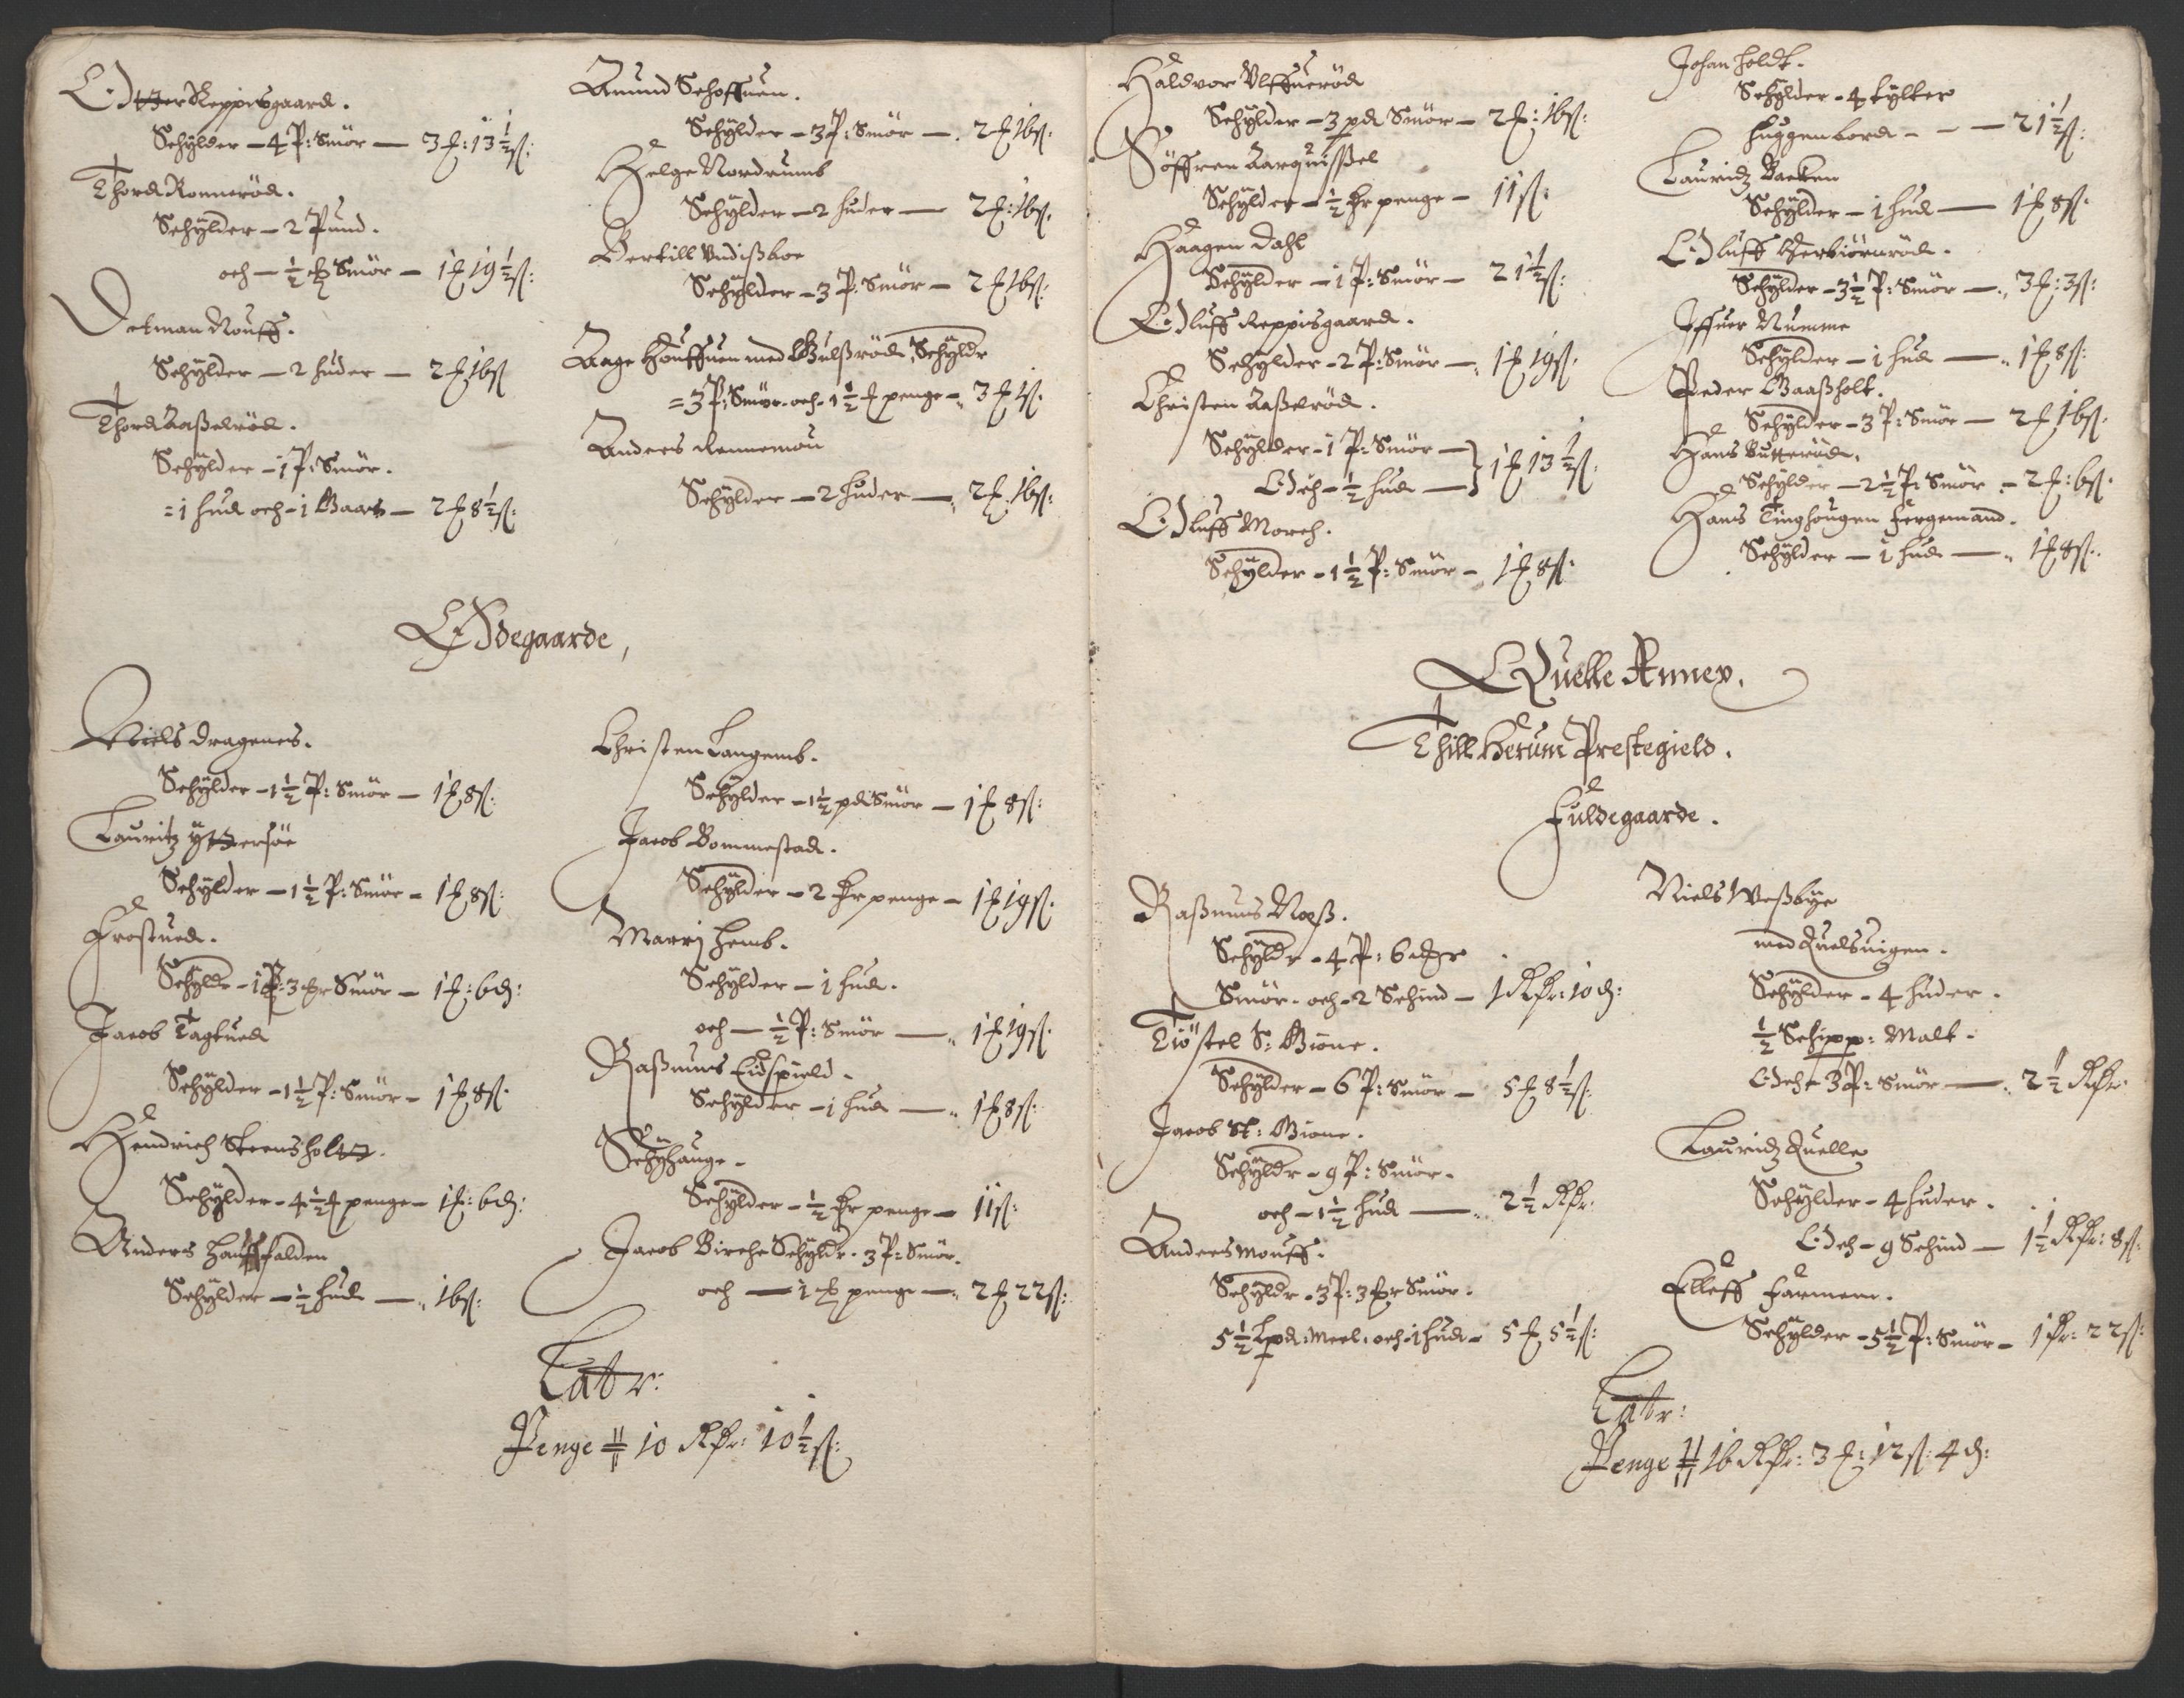 Otter Reppisgaard.
Schylder - 4 P: Smör - 3 £: 13½ ß:
Thord Ronneröd.
Schylder - 2 Pund.
och - ½ Smör - 1 £ 19½ ß:
Detman Nouff.
Schylder - 2 huder - 2 £ 16 ß
Thord Aaßelröd.
Schylder - 1 P: Smör.
= 1 hud och - 1 - 2 £ 8½ ß:
Amund Schoffuen.
Schylder - 3 P: Smör - 2 £ 16 ß:
Helge Nordrumb
Schylder - 2 huder - 2 £: 16 ß.
Bertill Undißboe
Schylder - 3 P: Smör - 2 £ 16 ß:
Aage Houffuen med Schyldr
= 3 P: Smör. och - 1½ £ penge - 3 £ 1 ß.
Anders Rennemou
Schylder - 2 huder - 2 £ 16 ß:
Ödegaarde,
Niels Dragenes.
Schylder - 1½ P: Smör - 1 £ 8 ß:
Lauritz Ÿttersöe
Schylder - 1½ P: Smör - 1 £ 8 ß:
Frostued.
Schyldr - 1 P: 3 Smör - 1 £: 6 d:
Jacob Tagtued
Schylder - 1½ P: Smör - 1 £ 8 ß.
Hendrich Steensholt.
Schylder - 4½ £ penge - 1 £: 6 d:
Anders Hauffalden
Schylder - ½ hud - 16 ß:
Christen Langemb.
Schylder - 1½ pd Smör - 1 £ 8 ß:
Jacob Bommestad.
Schylder - 2 penge - 1 £ 19 ß.
Marrj Hemb.
Schylder - 1 hud.
och - ½ P: Smör - 1 £ 19 ß.
Raßmus Eidspield.
Schylder - 1 hud - 1 £ 8 ß:
Schyhauge.
Schylder - ½ penge - 11 ß:
Jacob Birche Schyldr. 3 P: Smör.
och - 1 penge - 2 £ 22 ß:
Latr:
Penge 10 Rdr: 10½ ß:
Haldvor Ulffueröd
Schylder - 3 pd Smör - 2 £: 16 ß:
Söffren Aarquißel
Schylder - ½ penge - 11 ß:
Haagen Dahl
Schylder - 1 P: Smör - 21½ ß:
Oluff Reppisgaard.
Schylder - 2 P: Smör - 1 £ 19 ß.
Christen Aaßelröd.
Schylder - 1 P: Smör -
Och - ½ hud - } 1 £ 13½ ß.
Oluff Morch.
Schylder - 1½ P: Smör - 1 £ 8 ß:
Johan Holdt.
Schylder - 4 tylter
huggenbord - - - 21½ ß:
Lauridz Backen
Schylder - 1 hud - 1 £ 8 ß.
Oluff Herbiörnröd.
Schylder - 3½ P: Smör - 3 £: 3 ß:
Iffuer Numme
Schylder - 1 hud - 1 £ 8 ß:
Peder Gaaßholt.
Schylder - 3 P: Smör - 2 £ 16 ß.
Hans Butteröd.
Schylder - 2½ P: Smör - 2 £: 6 ß.
Hans Tinghougen fergemand.
Schylder - 1 hud - 1 £ 8 ß.
Quelle Annex.
Thill Hetum Prestegield.
Fuldegaarde.
Raßmus Neß.
Schyldr - 4 P: 6
Smör. och - 2 Schind - 1 Rdr: 10 d:
Tiöstel S: Biöne.
Schylder - 6 P: Smör - 5 £ 8½ ß.
Jacob St: Biöne.
Schyldr - 9 P: Smör.
och - 1½ hud - 2½ Rdr:
Anders Mouff.
Schyldr - 3 P: 3 Smör.
5½ Lpd: Meel. och - 1 hud - 5 £ 5½ ß:
Niels Weßbye
med Quelsuigen.
Schylder - 4 huder.
½ Schipp: Malt.
Och - 3 P: Smör - 2½ Rdr
Lauridz Quelle
Schylder - 4 huder.
Och - 9 Schind - 1½ Rdr: 8 ß:
Elleff Farmem.
Schylder - 5½ P: Smör - 1 Rdr: 22 ß:
Latr:
Penge 16 Rdr: 3 £: 12 ß: 4 d: